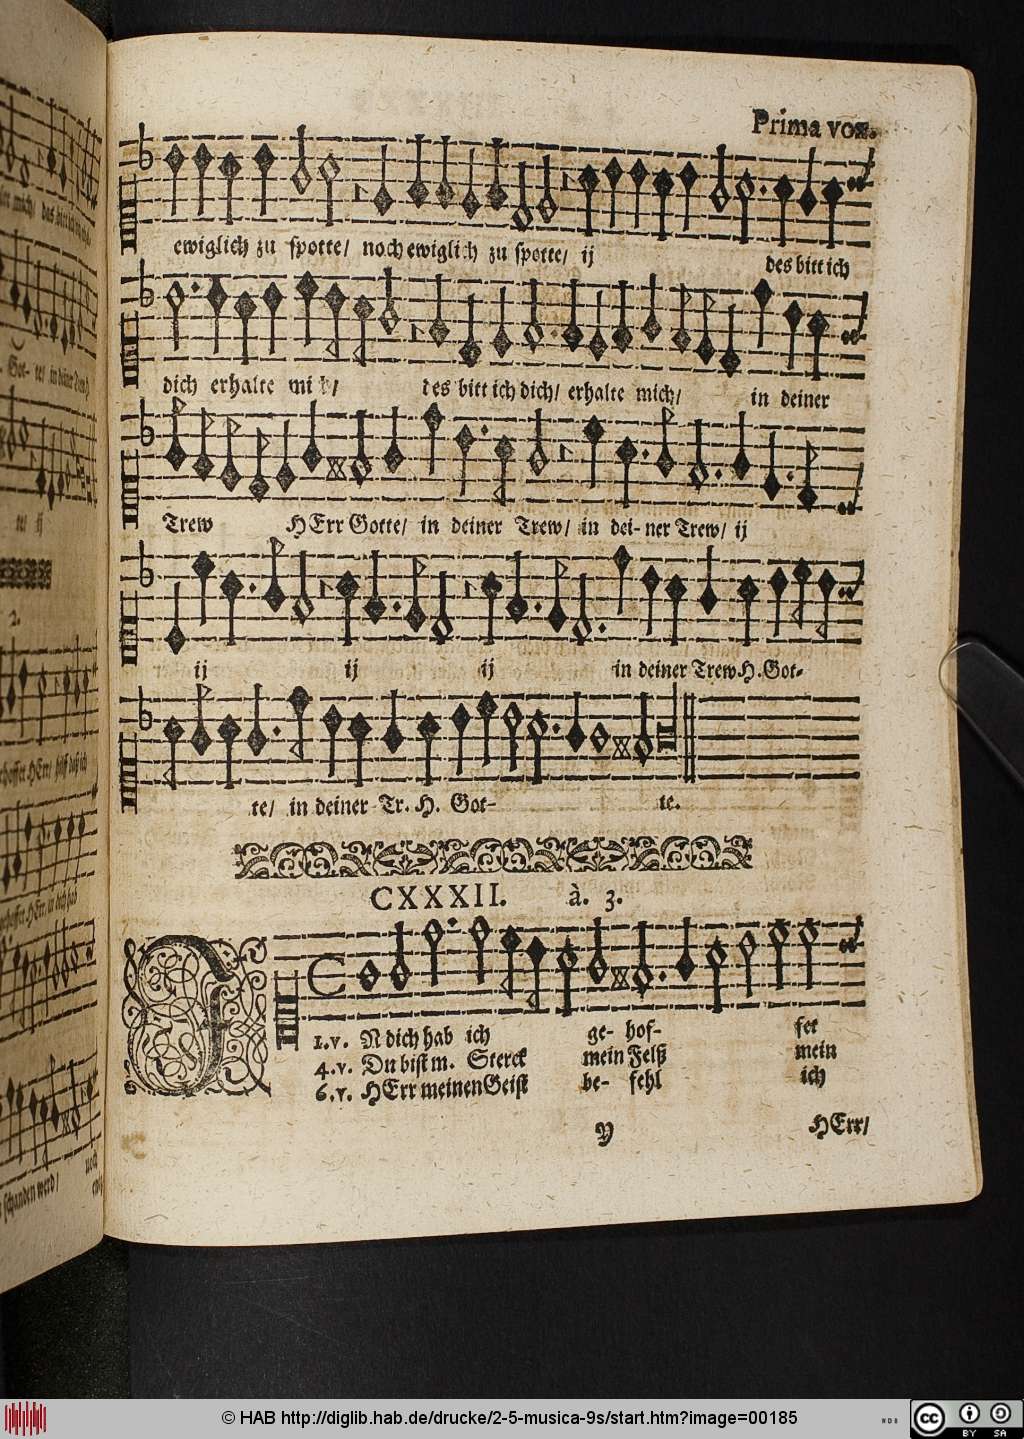 Prima vox.
ewiglich zu spotte/ noch ewiglich zu spotte/ ij des bitt ich
dich erhalte mich/ des bitt ich dich/ erhalte mich/ in deiner
Trew HErr Gotte/ in deiner Trew/ in dei- ner Trew/ ij
ij ij ij in deiner Trew H. Got-
te/ in deiner Tr. H. Got- te.
CXXXII. à. 3.
1.v. JN dich hab ich ge- hof- fet
4.v. Du bist m. Sterck mein Felß mein
6.v. HErr meinen Geist be- fehl ich
Y HErr/
© HAB http://diglib.hab.de/drucke/2-5-musica-9s/start.htm?image=00185
cc BY SA